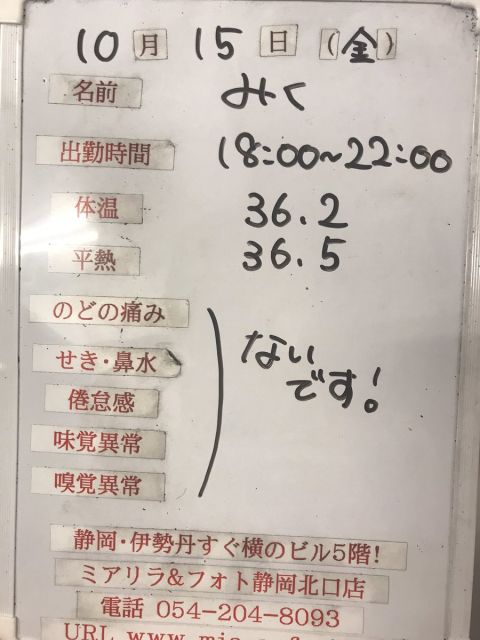 10月15日(金)
名前 みく
出勤時間 18:00~22:00
体温 36.2
平熱 36.5
のどの痛み
せき・鼻水 ない
倦怠感 です!
味覚異常
嗅覚異常
静岡・伊勢丹すぐ横のビル5階!
ミアリラ&フォト静岡北口店
電話 054-204-8093
URL www